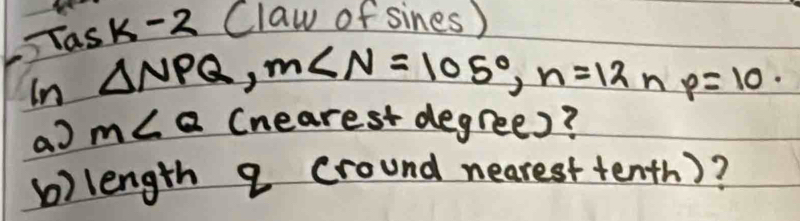 Task-2 (law of sines)
In △NPQ, m<N = 105°, n=12 n p=10.
a) m<Q (nearest degree)?
b) length q (round nearest tenth)?